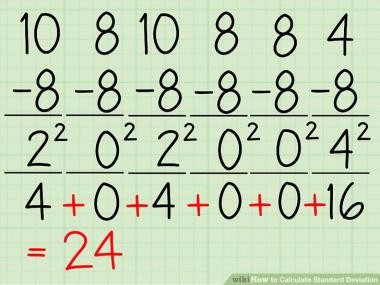 10 8 10 8 8 4
-8 -8 -8 -8 -8 -8
2² 0² 2² 0² 0² 4²
4 + 0 + 4 + 0 + 0 + 16
= 24
wikiHow to Calculate Standard Deviation